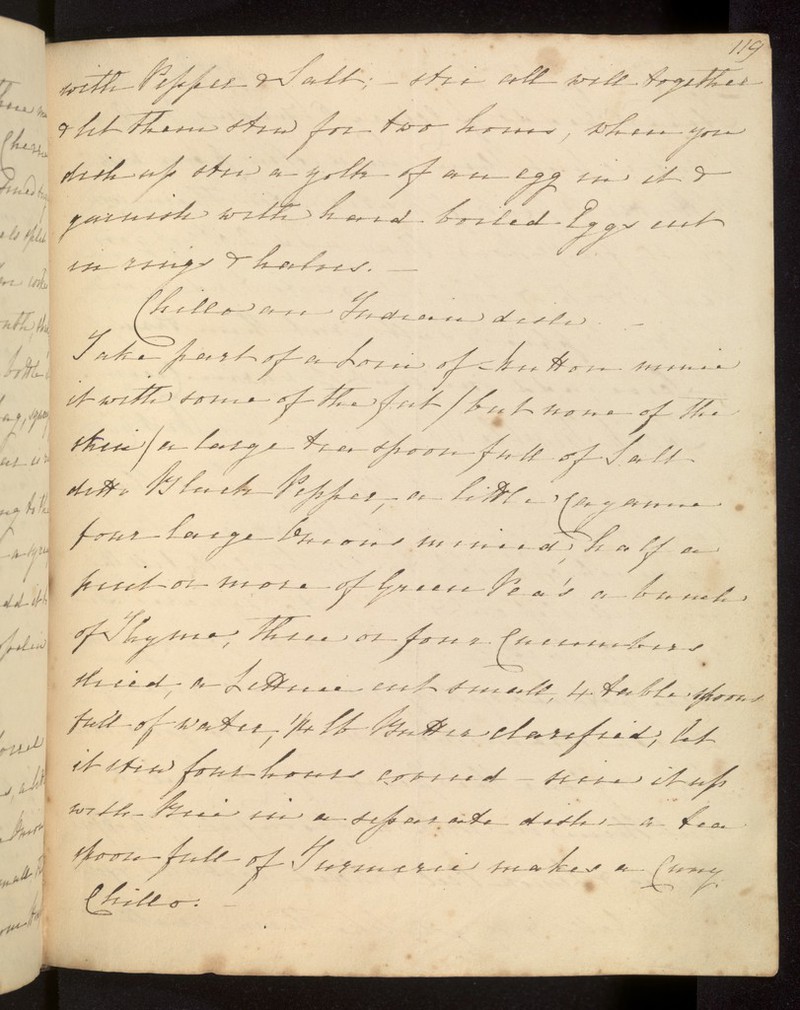 119
with Pepper & Salt; - stir all well together
& let them stew for two hours, when you
dish up stir a yolk of an egg in it &
garnish with hard boiled Eggs cut
in rings & halves. -
Chillo an Indian dish. -
Take part of a Loin of Mutton mince
it with some of the fat / but none of the
skin / a large tea spoon full of Salt
ditto Black Pepper, a little Cayanne
four large Onions minced, half a
pint or more of Green Pea's a bunch
of Thyme, three or four Cucumbers
sliced, a Lettuce cut small, 4 table spoons
full of water, 1/4 lb Butter clarified, let
it stew four hours covered - serve it up
with Rice in a separate dish - a tea
spoon full of Turmeric makes a Curry
Chillo. -